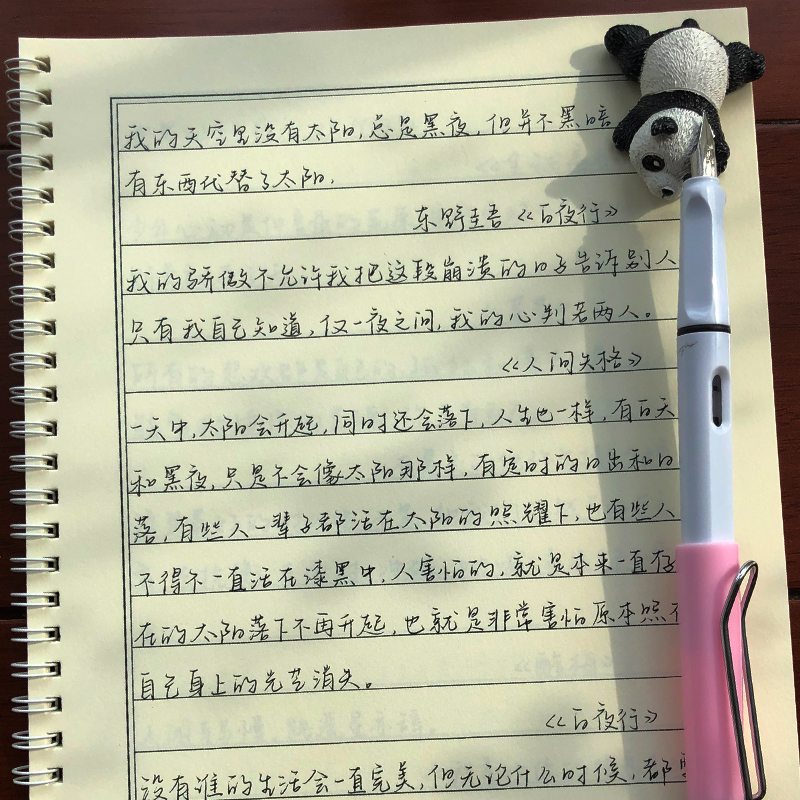 我的天空里没有太阳,总是黑夜,但并不黑暗
有东西代替了太阳.
东野圭吾《白夜行》
我的骄傲不允许我把这段崩溃的日子告诉别人
只有我自己知道,仅一夜之间,我的心判若两人。
《人间失格》
一天中,太阳会升起,同时还会落下,人生也一样,有白天
和黑夜,只是不会像太阳那样,有定时的日出和日
落,有些人一辈子都活在太阳的照耀下,也有些人
不得不一直活在漆黑中,人害怕的,就是本来一直存
在的太阳落下不再升起,也就是非常害怕原本照在
自己身上的光芒消失。
《白夜行》
没有谁的生活会一直完美,但无论什么时候,都